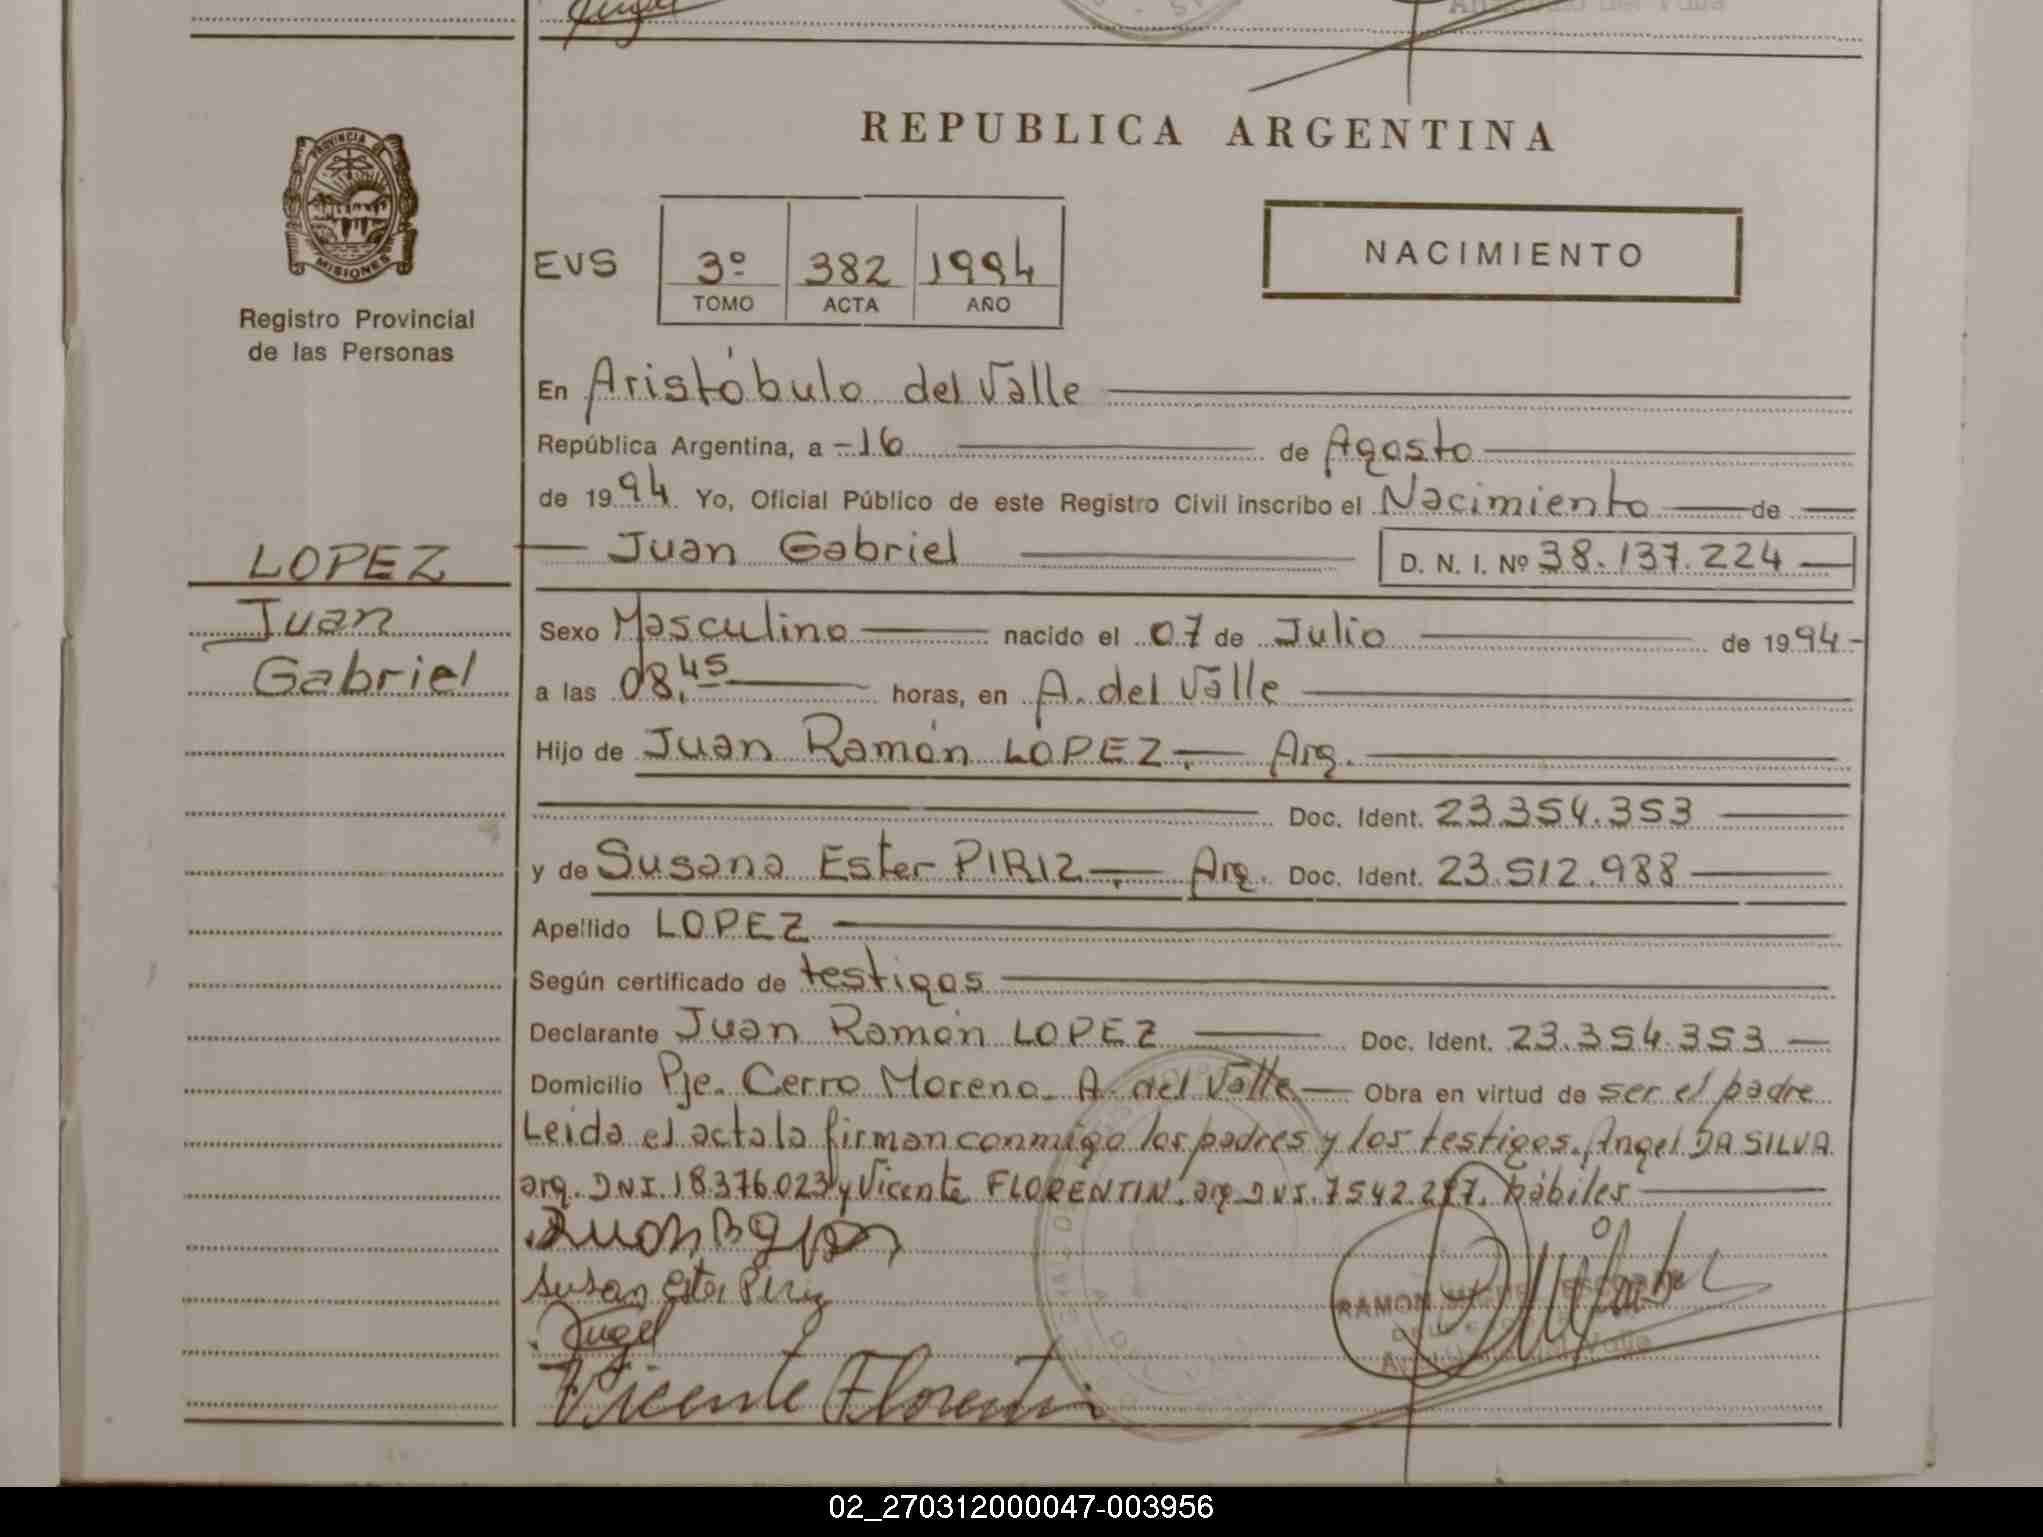 REPUBLICA ARGENTINA
PROVINCIA DE
MISIONES
Registro Provincial
de las Personas
EVS 3º 382 1994
TOMO ACTA AÑO
NACIMIENTO
En Aristóbulo del Valle
República Argentina, a -16 de Agosto
de 1994 Yo, Oficial Público de este Registro Civil inscribo el Nacimiento de
LOPEZ
Juan Gabriel D. N. I. Nº 38.137.224
Juan
Sexo Masculino nacido el 07 de Julio de 1994-
Gabriel
a las 08,45 horas, en A. del Valle
Hijo de Juan Ramón LOPEZ.- Arg.
Doc. Ident. 23.354.353
y de Susana Ester PIRIZ.- Arg. Doc. Ident. 23.512.988
Apellido LOPEZ
Según certificado de testigos
Declarante Juan Ramón LOPEZ Doc. Ident. 23.354.353
Domicilio Pje. Cerro Moreno. A. del Valle Obra en virtud de ser el padre
Leida el acta la firman conmigo los padres y los testigos. Angel DA SILVA
arg. DNI. 18.376.023 y Vicente FLORENTIN. arg DNI. 7542.217. hábiles
Susan Ester Piriz
Angel
RAMON
Vicente Florentin
02_270312000047-003956